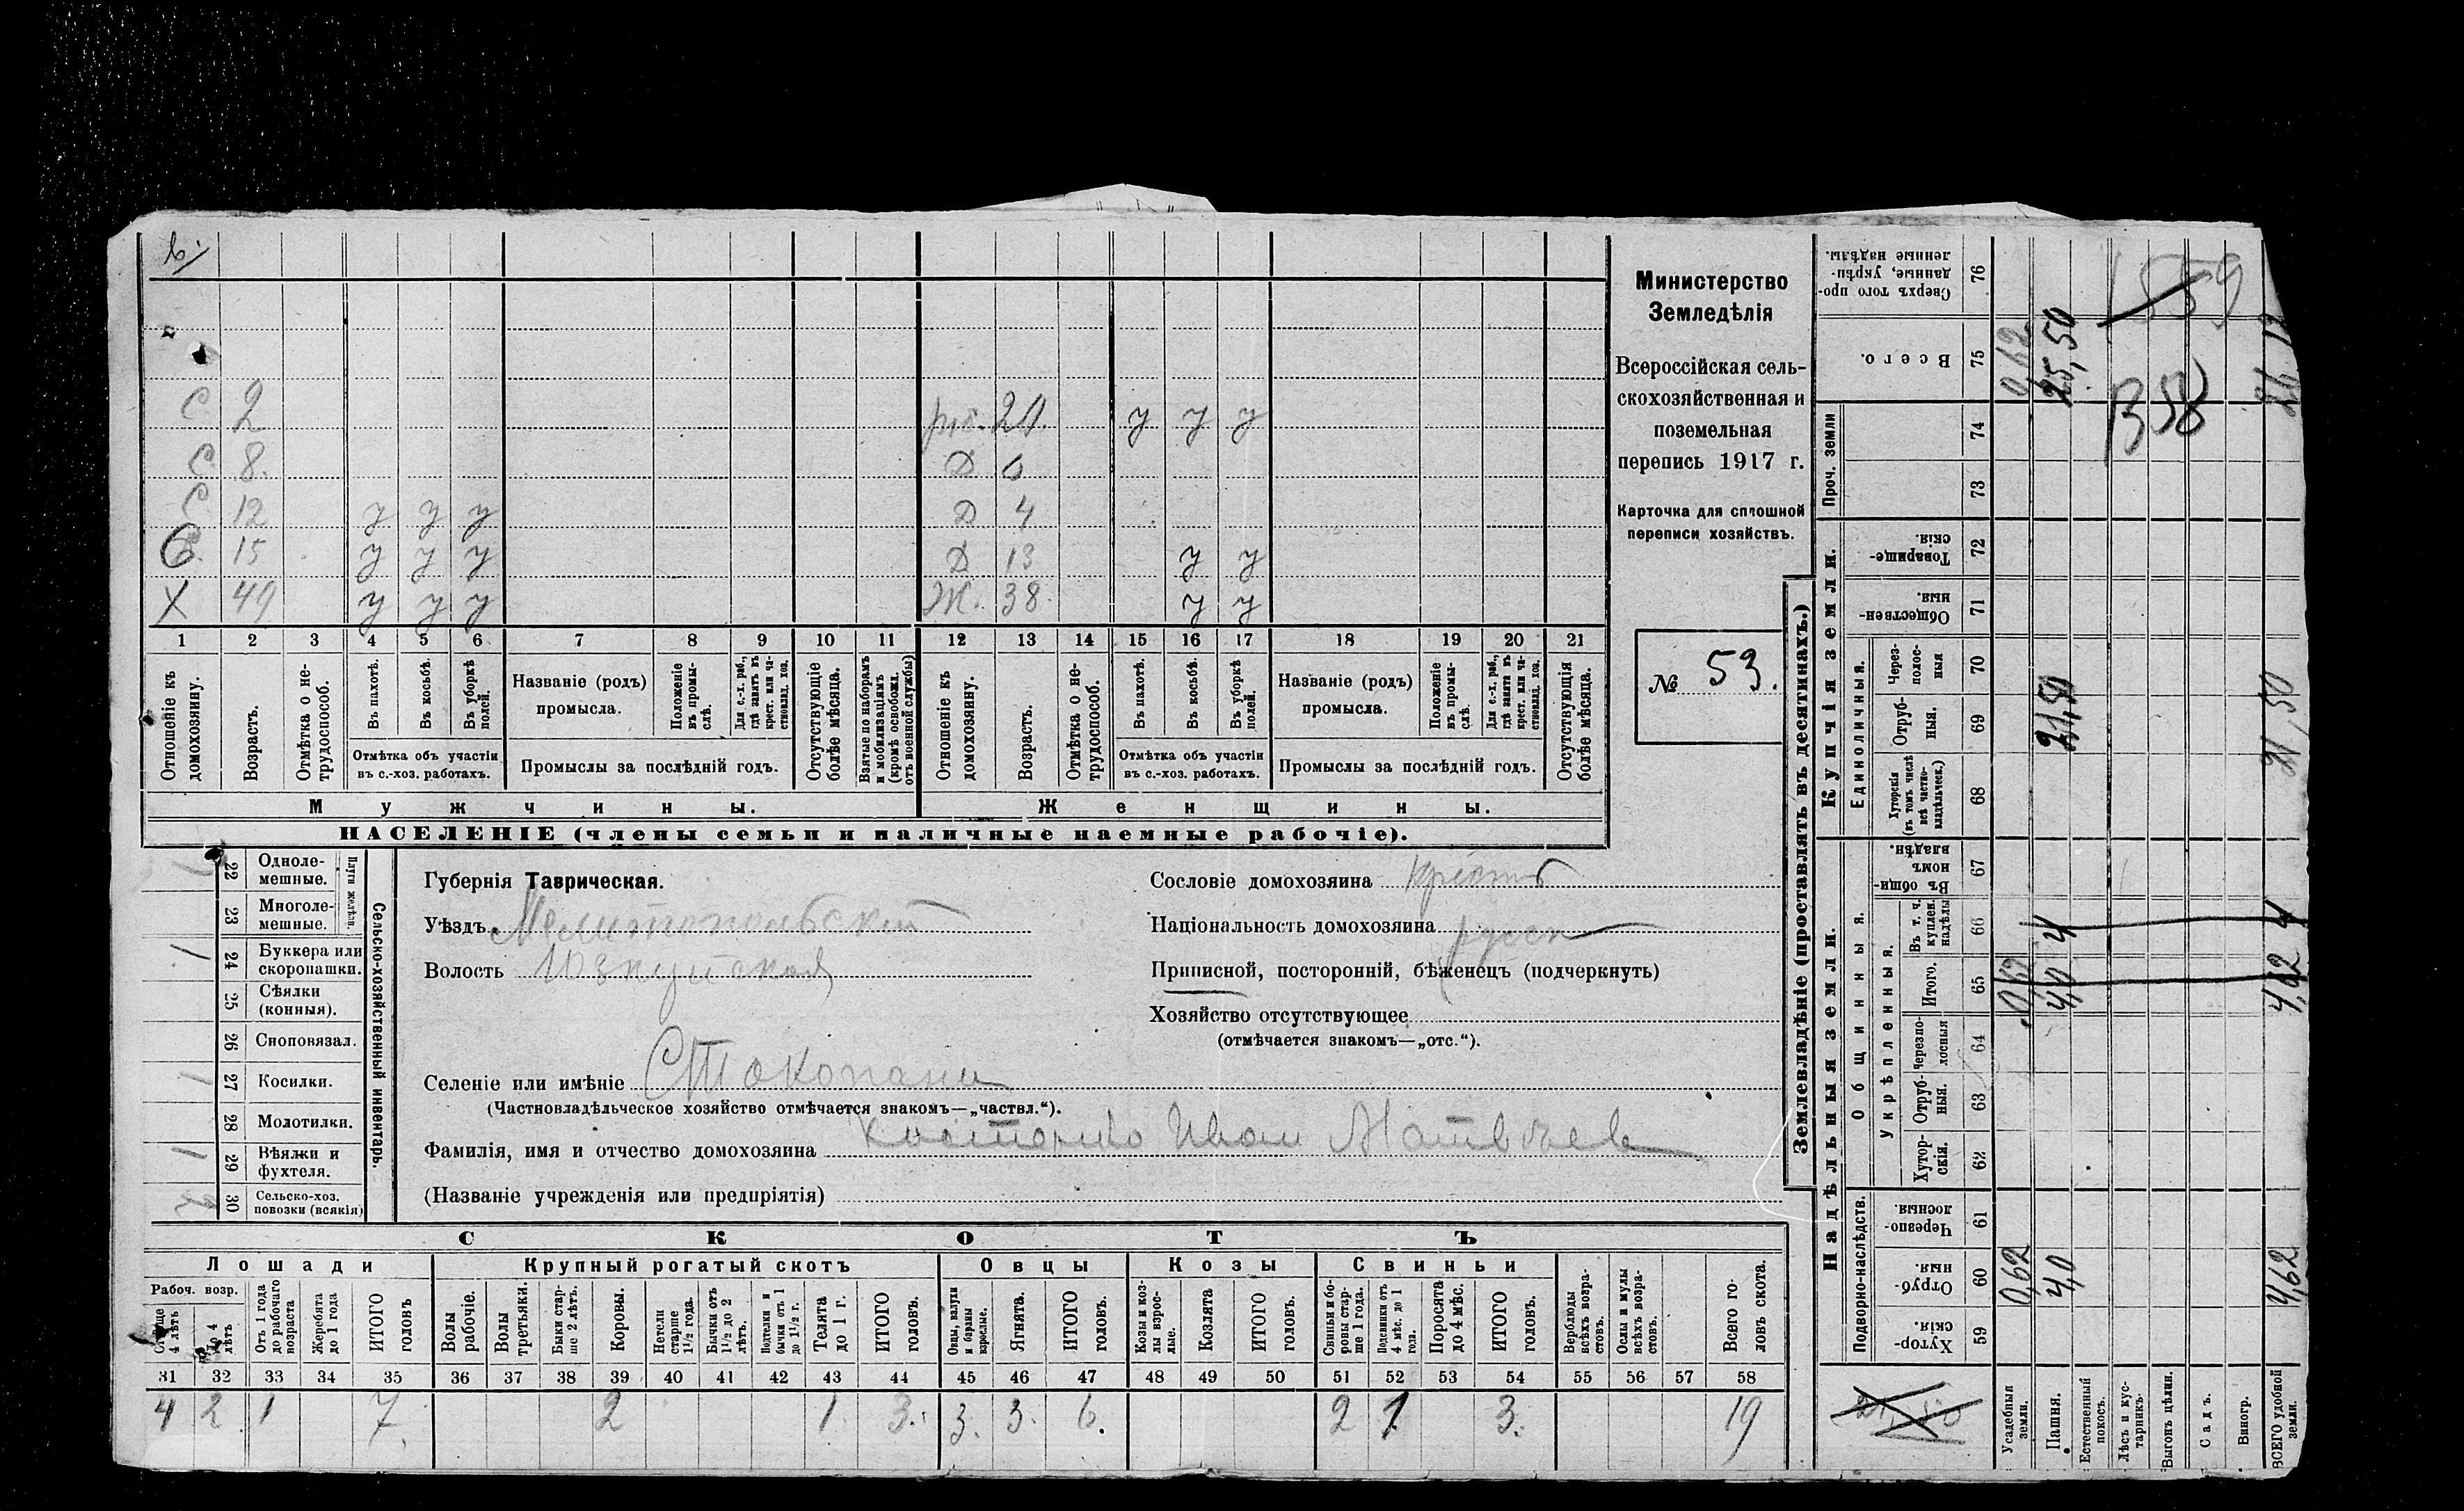 6.
С 2
р.б. 20. у у у
С 8.
Д 6
С 12 у у у
Д 4
С 15 у у у
Д 13 у у
Х 49 у у у
Ж. 38. у у
1 2 3 4 5 6 7 8 9 10 11 12 13 14 15 16 17 18 19 20 21
Отношеніе къ домохозяину.
Возрастъ.
Отмѣтка о не-трудоспособ.
Въ пахотѣ.
Въ косьбѣ.
Въ уборкѣ полей.
Отмѣтка объ участіи
въ с.-хоз. работахъ.
Названіе (родъ)
промысла.
Положеніе въ промы-слѣ.
Для с.-х. раб., гдѣ занятъ въ крест. или ча-ствовлад. хоз.
Промыслы за послѣдній годъ.
Отсутствующіе болѣе мѣсяца.
Взятые по наборамъ и мобилизаціямъ (кромѣ освобожд. отъ военной службы)
Отношеніе къ домохозяину.
Возрастъ.
Отмѣтка о не-трудоспособ.
Въ пахотѣ.
Въ косьбѣ.
Въ уборкѣ полей.
Отмѣтка объ участіи
въ с.-хоз. работахъ.
Названіе (родъ)
промысла.
Положеніе въ промы-слѣ.
Для с.-х. раб., гдѣ занята въ крест. или ча-ствовлад. хоз.
Промыслы за послѣдній годъ.
Отсутствующія болѣе мѣсяца.
Мужчины.
Женщины.
НАСЕЛЕНІЕ (члены семьи и наличные наемные рабочіе).
Министерство
Земледѣлія
Всероссійская сель-
скохозяйственная и
поземельная
перепись 1917 г.
Карточка для сплошной
переписи хозяйствъ.
№ 53.
Сельско-хозяйственный инвентарь.
Плуги желѣзн.
22 Одноле-мешные. 1
23 Многоле-мешные.
24 Буккера или скоропашки. 1
25 Сѣялки (конныя).
26 Сноповязал.
27 Косилки. 1
28 Молотилки.
29 Вѣялки и фухтеля. 1
30 Сельско-хоз. повозки (всякія) 2
Губернія Таврическая.
Уѣздъ Мелитопольскій
Волость Юзкуйская
Сословіе домохозяина крестьян
Національность домохозяина русск
Приписной, посторонній, бѣженецъ (подчеркнуть)
Хозяйство отсутствующее
(отмѣчается знакомъ—„отс.“).
Селеніе или имѣніе Стокопани
(Частновладѣльческое хозяйство отмѣчается знакомъ—„частвл.“).
Фамилія, имя и отчество домохозяина Иван Матвѣев
(Названіе учрежденія или предпріятія)
СКОТЪ
Лошади
Крупный рогатый скотъ
Овцы
Козы
Свиньи
Рабоч. возр.
Старше 4 лѣтъ
До 4 лѣтъ
Отъ 1 года до рабочаго возраста
Жеребята до 1 года
ИТОГО головъ
Волы рабочіе.
Волы третьяки.
Быки стар-ше 2 лѣтъ.
Коровы.
Нетели старше 1½ года.
Бычки отъ 1½ до 2 лѣтъ.
Подтелки и бычки отъ 1 до 1½ г.
Телята до 1 г.
ИТОГО головъ.
Овцы, валухи и бараны взрослые.
Ягнята.
ИТОГО головъ.
Козы и коз-лы взрос-лые.
Козлята
ИТОГО головъ.
Свиньи и бо-ровы стар-ше 1 года.
Подсвинки отъ 4 мѣс. до 1 года.
Поросята до 4 мѣс.
ИТОГО головъ.
Верблюды всѣхъ возра-стовъ.
Ослы и мулы всѣхъ возра-стовъ.
Всего го-ловъ скота.
31 32 33 34 35 36 37 38 39 40 41 42 43 44 45 46 47 48 49 50 51 52 53 54 55 56 57 58
4 2 1 7. 2 1 3. 3. 3. 6. 2 1 3. 19
Землевладѣніе (проставлять въ десятинахъ.)
Купчія земли.
Проч. земли
Единоличныя.
Надѣльныя земли.
Общинныя.
Укрѣпленныя.
Подворно-наслѣдств.
Сверхъ того про-данные, укрѣп-ленные надѣлы. 76
Всего. 75 0,62 25,50 26,12
74
73
Товарище-скія. 72
Обществен-ныя. 71
Через-полос-ныя 70
Отруб-ныя. 69 21,50 21,50
Хуторскія (въ томъ числѣ всѣ частно-владѣльческ.) 68
Въ общи-номъ владѣн. 67
Въ т. ч. куплен. надѣлы 66 4 4
Итого. 65 0,62 4,0 4,62
Черезпо-лосныя 64
Отруб-ныя. 63
Хутор-скія. 62
Черезпо-лосныя. 61
Отруб-ныя. 60 0,62 4,0 4,62
Хутор-скія. 59
1559
В58
21,50
Усадебныя земли.
Пашня.
Естественный покосъ.
Лѣсъ и кус-тарникъ.
Выгонъ цѣлин.
Садъ.
Виногр.
ВСЕГО удобной земли.